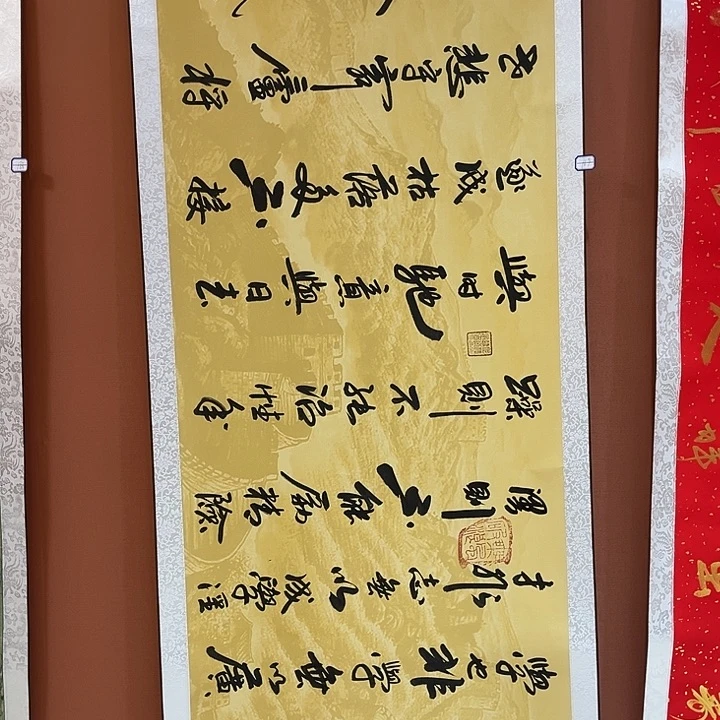 學也非學無以廣
才非志無以成學淫
慢則不能励精險
躁則不能治性年
與时馳意與日去
遂成枯落多不接
世悲守窮廬將